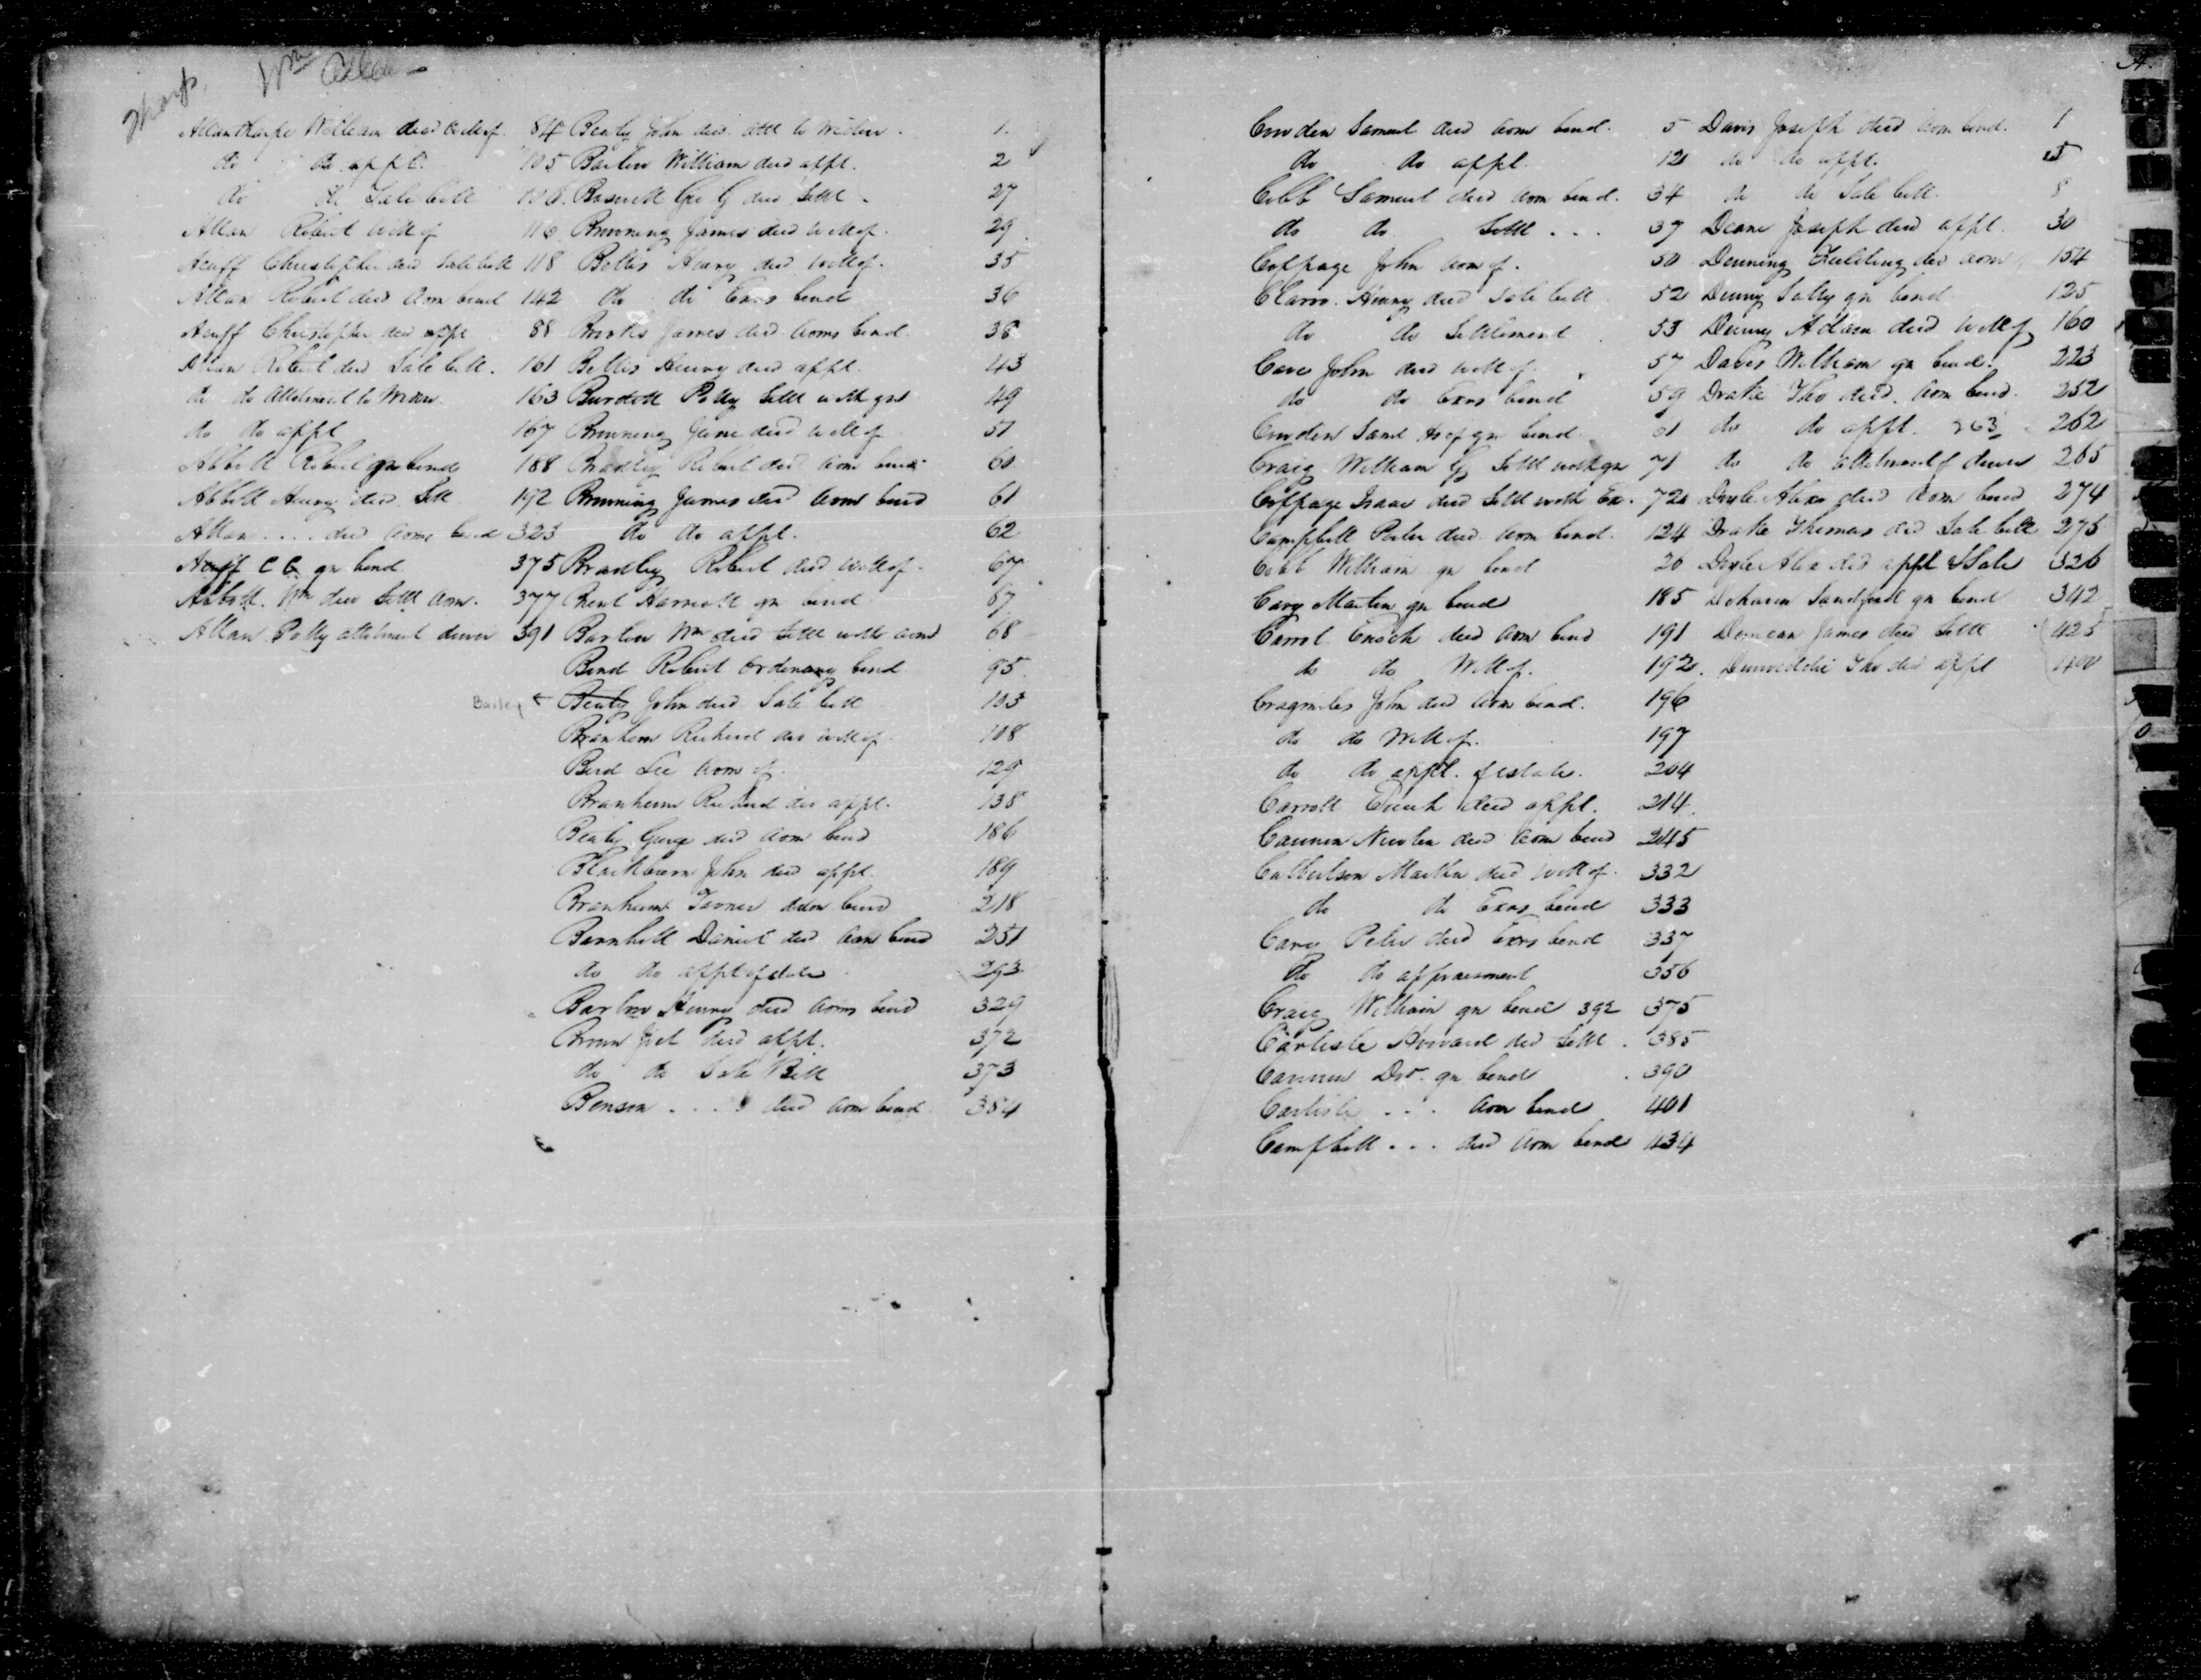 Tharp, Wm Allen
Allantharpe William decd will of 84
do do appt. 105
do do Sale bill 106
Allan Robert will of 116
Acuff Christopher decd Sale bill 118
Allan Robert decd Adm bond 142
Acuff Christopher decd appt 88
Allan Robert decd Sale bill. 161
do do allotment to Widow. 163
do do appt 167
Abbott Robert gn bond 188
Abbott Henry decd Settl 192
Allan .... decd Adms bond 323
Acuff C C gn bond 375
Abbott. Wm decd Settl Adm. 377
Allan Polly allotment dower 391
Beaty John decd. attl to Widow. 1.
Barlow William decd appt. 2
Geo G decd Settl. 27
Browning James decd will of. 29
Bettis Henry decd will of. 35
do do Exrs bond 36
Brooks James decd. Adms bond. 38
Bettis Henry decd appt. 43
Burdett Polly Settl with gn 49
Browning Jane decd will of 51
Bradley Robert decd Adm bond 60
Browning James decd Adms bond 61
do do appt. 62
Bradley Robert decd will of. 67
Brent Harriett gn bond 67
Barlow Wm decd Settl with Adms 68
Bond Robert Ordinary bond 95
Bailey ← Beaty John decd Sale bill 103
Branham Richard dec will of. 108
Bird Lee Adm of. 129
Branham Richard dec appt. 138
Beaty George decd Adm bond 186
Blackburn John decd appt. 189
Branham Tavner adm bond 218
Barnhill Daniel decd Adm bond 251
do do appt of estate 293
Barlow Henry decd Adms bond 329
Brown Joel decd appt. 372
do do Sale Bill 373
Benson .... decd Adm bond 384
Cowden Samuel decd Adm bond. 5
do do appt. 12
Cobb Samuel decd Adm bond. 34
do do Settl ... 37
Coppage John Adm of. 50
Henry decd Sale bill 52
do do Settlement 53
Cave John decd will of. 57
do do Exrs bond 59
Cowden Saml Hs of gn bond. 61
Craig William G Settl with gn 71
Coppage Isaac decd Settl with Ex. 72
Campbell Peter decd. Adm bond. 124
Cobb William gn bond 26
Cary Martin gn bond 185
Carrol Enoch decd Adm bond 191
do do Will of. 192
Cragmiles John decd Adm bond. 196
do do Will of. 197
do do appt. of estate. 204
Carroll Enoch decd appt. 214
Cannon Newton decd Adm bond 245
Culbertson Martha decd will of. 332
do do Exrs bond 333
Cary Peter decd Exrs bond 337
Do do appraisment 356
Craig William gn bond 392 375
Carlisle Howard decd Settl. 385
Cannon gn bond 390
Carlisle ... Adm bond 401
Campbell ... decd Adm bond 434
Davis Joseph decd Adm bond. 1
do do appt. 5
do do Sale bill. 8
Deane Joseph decd appt. 30
Denning dec Adm 154
Denny Salley gn bond 125
Denny Adam decd will of 160
Davis William gn bond. 223
Drake Tho decd. Adm bond. 252
do do appt. 263 262
do do allotment of dower 265
Doyle Alexr decd Adm bond 274
Drake Thomas decd Sale bill 275
Doyle Alex decd appt & Sale 326
Dehaven Sandford gn bond 342
Duncan James decd Settl 425
Dunwiddie Tho decd appt 400